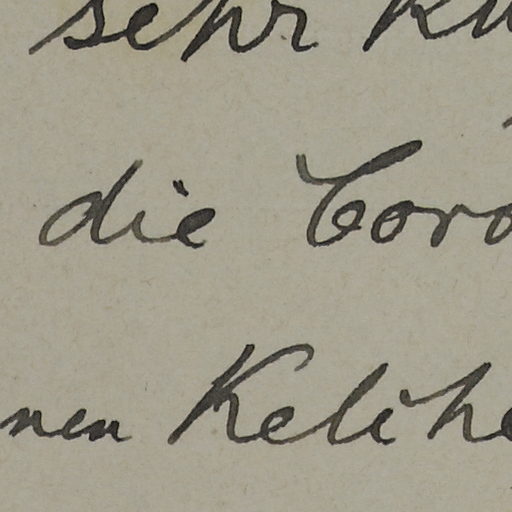 sehr ku
die Coro
nen Kelche